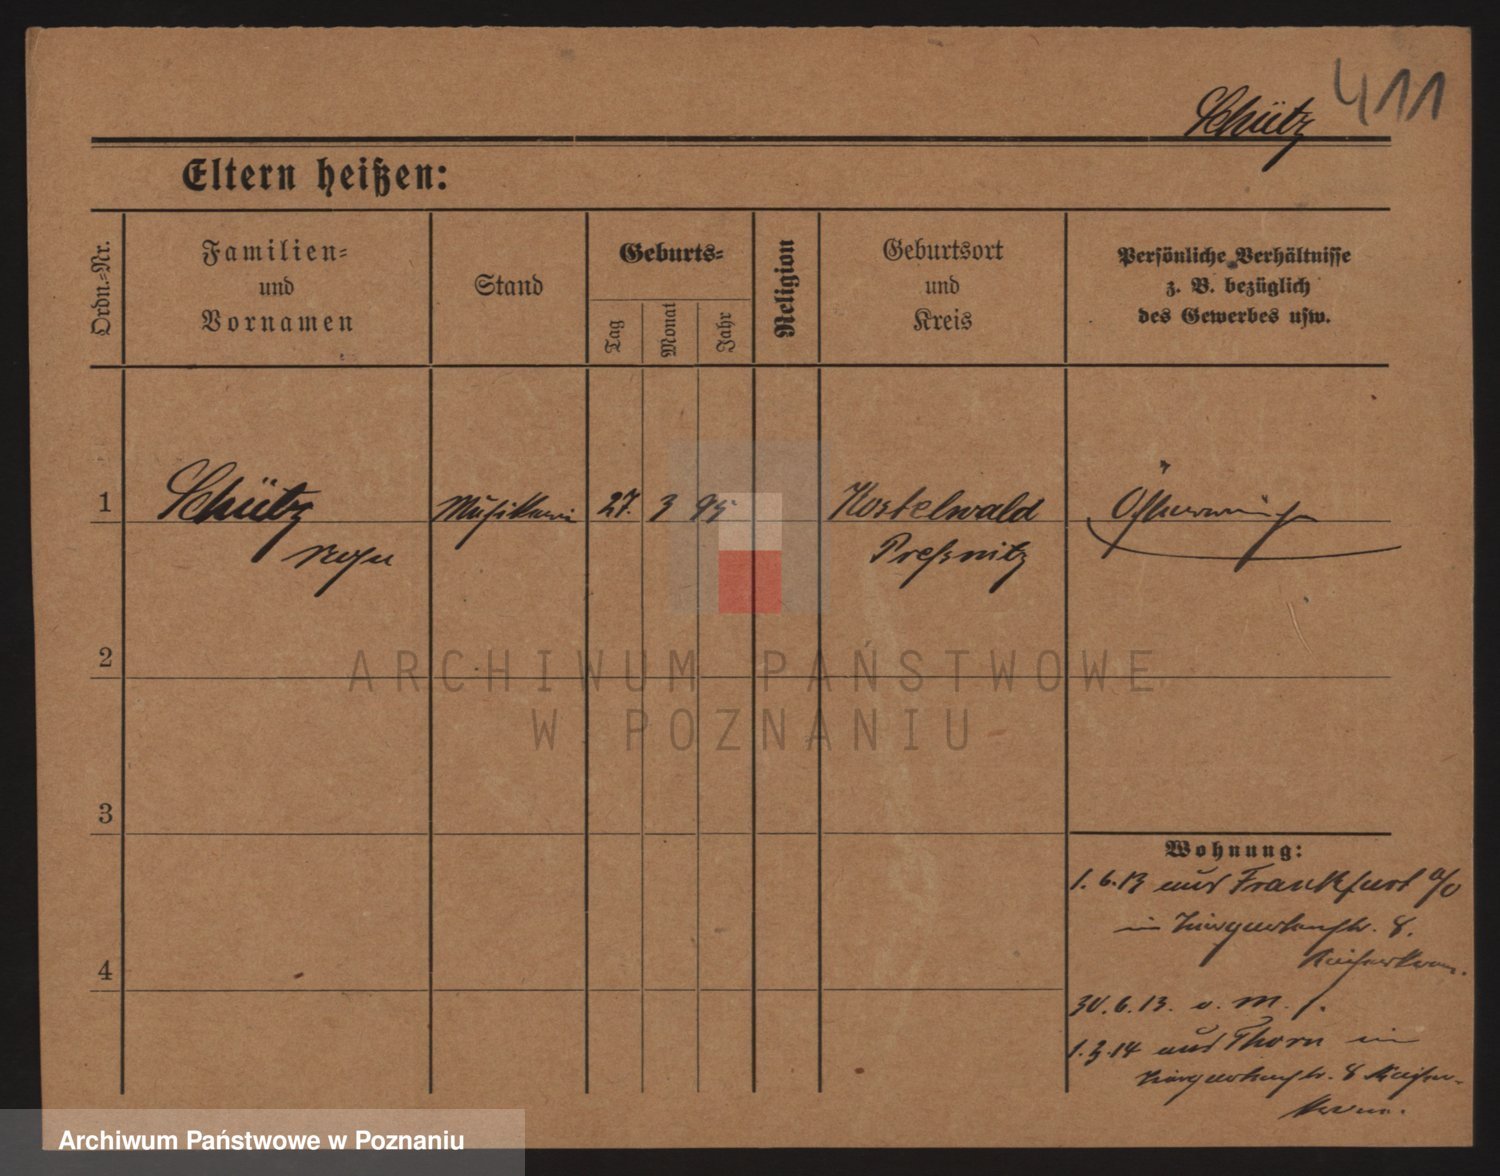 411
Schütz
Eltern heißen:
Ordn.-Nr.
Familien-
und
Vornamen
Stand
Geburts-
Tag
Monat
Jahr
Religion
Geburtsort
und
Kreis
Persönliche Verhältnisse
z. B. bezüglich
des Gewerbes usw.
1 Schütz Musikerin 27. 3 95 Kostelwald
Rosa Preßnitz
2
3
4
Wohnung:
1. 6. 13 aus Frankfurt a/O
in 8.
30. 6. 13. v. M.
1. 3. 14 aus Thorn in
8 Kaiser-
ARCHIWUM PAŃSTWOWE
W POZNANIU
Archiwum Państwowe w Poznaniu